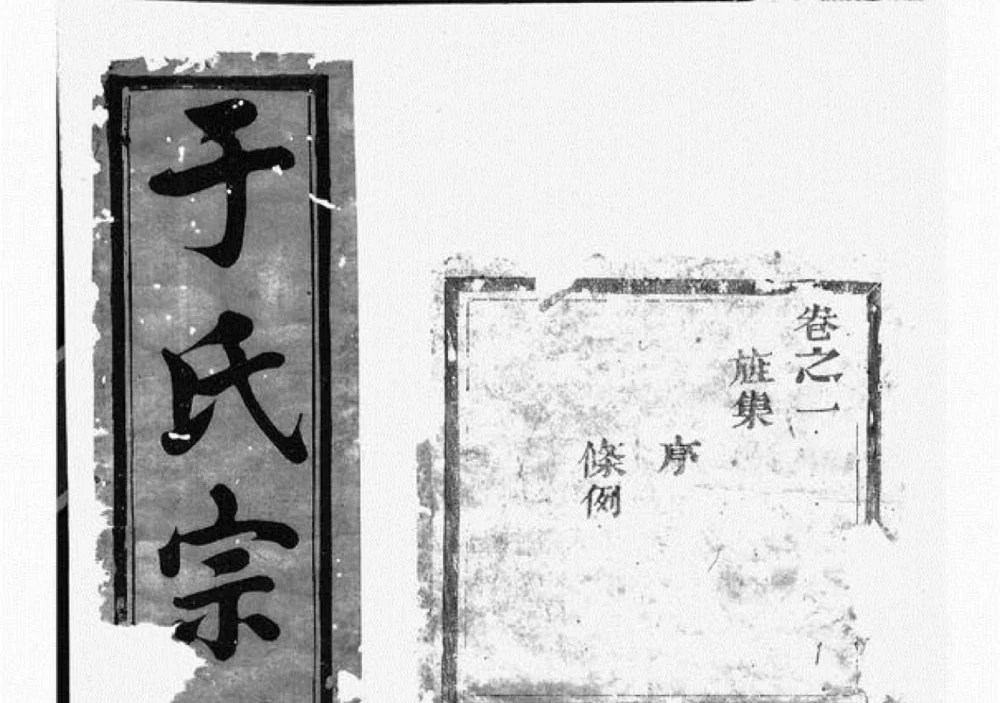 于氏宗
卷之一
旌集
序
條例